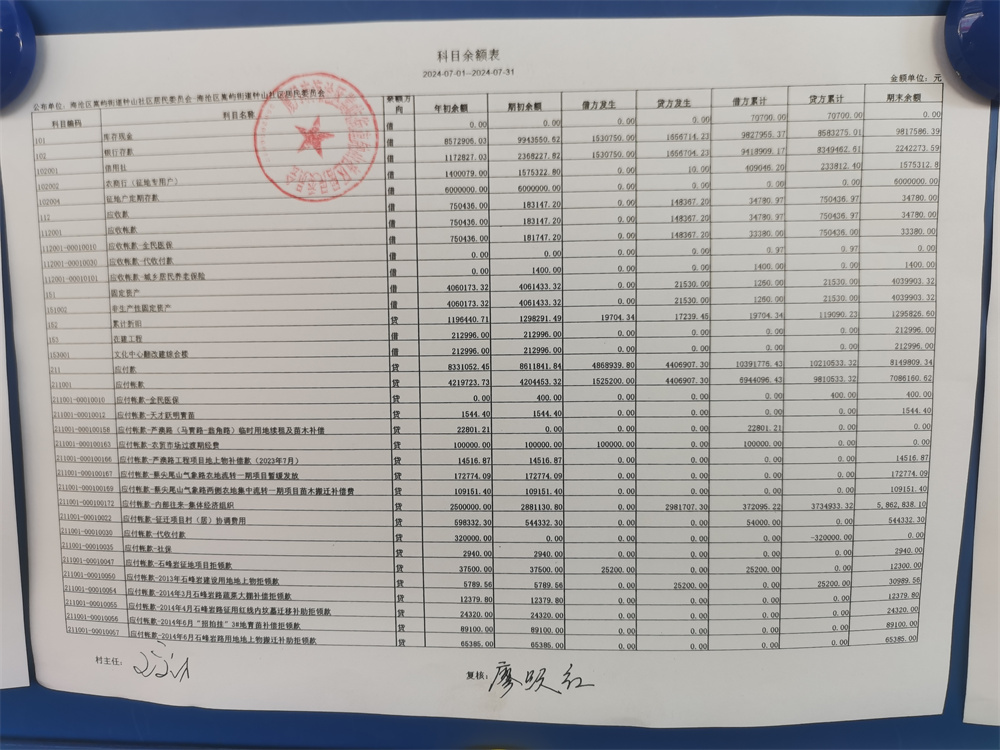 科目余额表
2024-07-01--2024-07-31
公布单位：海沧区嵩屿街道钟山社区居民委员会-海沧区嵩屿街道钟山社区居民委员会 金额单位：元
科目编码 科目名称 余额方向 年初余额 期初余额 借方发生 贷方发生 借方累计 贷方累计 期末余额
101 库存现金 借 0.00 0.00 0.00 0.00 70700.00 70700.00 0.00
102 银行存款 借 8572906.03 9943550.62 1530750.00 1656714.23 9827955.37 8583275.01 9817586.39
102001 信用社 借 1172827.03 2368227.82 1530750.00 1656704.23 9418909.17 8349462.61 2242273.59
102002 农商行（征地专用户） 借 1400079.00 1575322.80 0.00 10.00 409046.20 233812.40 1575312.8
102004 征地户定期存款 借 6000000.00 6000000.00 0.00 0.00 0.00 0.00 6000000.00
112 应收款 借 750436.00 183147.20 0.00 148367.20 34780.97 750436.97 34780.00
112001 应收帐款 借 750436.00 183147.20 0.00 148367.20 34780.97 750436.97 34780.00
112001-00010010 应收帐款-全民医保 借 750436.00 181747.20 0.00 148367.20 33380.00 750436.00 33380.00
112001-00010030 应收帐款-代收付款 借 0.00 0.00 0.00 0.00 0.97 0.97 0.00
112001-00010101 应收帐款-城乡居民养老保险 借 0.00 1400.00 0.00 0.00 1400.00 0.00 1400.00
151 固定资产 借 4060173.32 4061433.32 0.00 21530.00 1260.00 21530.00 4039903.32
151002 非生产性固定资产 借 4060173.32 4061433.32 0.00 21530.00 1260.00 21530.00 4039903.32
152 累计折旧 贷 1196440.71 1298291.49 19704.34 17239.45 19704.34 119090.23 1295826.60
153 在建工程 借 212996.00 212996.00 0.00 0.00 0.00 0.00 212996.00
153001 文化中心翻改建综合楼 借 212996.00 212996.00 0.00 0.00 0.00 0.00 212996.00
211 应付款 贷 8331052.45 8611841.84 4868939.80 4406907.30 10391776.43 10210533.32 8149809.34
211001 应付帐款 贷 4219723.73 4204452.32 1525200.00 4406907.30 6944096.43 9810533.32 7086160.62
211001-00010010 应付帐款-全民医保 贷 0.00 400.00 0.00 0.00 0.00 400.00 400.00
211001-00010012 应付帐款-天才跃明青苗 贷 1544.40 1544.40 0.00 0.00 0.00 0.00 1544.40
211001-000100158 应付帐款-芦澳路（马青路-翁角路）临时用地续租及苗木补偿 贷 22801.21 0.00 0.00 0.00 22801.21 0.00 0.00
211001-000100163 应付帐款-农贸市场过渡期经费 贷 100000.00 100000.00 100000.00 0.00 100000.00 0.00 0.00
211001-000100166 应付帐款-芦澳路工程项目地上物补偿款（2023年7月） 贷 14516.87 14516.87 0.00 0.00 0.00 0.00 14516.87
211001-000100167 应付帐款-蔡尖尾山气象路农地流转一期项目暂缓发放 贷 172774.09 172774.09 0.00 0.00 0.00 0.00 172774.09
211001-000100169 应付帐款-蔡尖尾山气象路两侧农地集中流转一期项目苗木搬迁补偿费 贷 109151.40 109151.40 0.00 0.00 0.00 0.00 109151.40
211001-000100172 应付帐款-内部往来-集体经济组织 贷 2500000.00 2881130.80 0.00 2981707.30 372095.22 3734933.32 5,862,838.10
211001-00010022 应付帐款-征迁项目村（居）协调费用 贷 598332.30 544332.30 0.00 0.00 54000.00 0.00 544332.30
211001-00010030 应付帐款-代收付款 贷 320000.00 0.00 0.00 0.00 0.00 -320000.00 0.00
211001-00010035 应付帐款-社保 贷 2940.00 2940.00 0.00 0.00 0.00 0.00 2940.00
211001-00010047 应付帐款-石峰岩征地项目拒领款 贷 37500.00 37500.00 25200.00 0.00 25200.00 0.00 12300.00
211001-00010050 应付帐款-2013年石峰岩建设用地地上物拒领款 贷 5789.56 5789.56 0.00 25200.00 0.00 25200.00 30989.56
211001-00010054 应付帐款-2014年3月石峰岩路蔬菜大棚补偿拒领款 贷 12379.80 12379.80 0.00 0.00 0.00 0.00 12379.80
211001-00010055 应付帐款-2014年4月石峰岩路征用红线内坟墓迁移补助拒领款 贷 24320.00 24320.00 0.00 0.00 0.00 0.00 24320.00
211001-00010056 应付帐款-2014年6月"招拍挂"3#地青苗补偿拒领款 贷 89100.00 89100.00 0.00 0.00 0.00 0.00 89100.00
211001-00010057 应付帐款-2014年6月石峰岩路用地地上物搬迁补助拒领款 贷 65385.00 65385.00 0.00 0.00 0.00 0.00 65385.00
村主任： 复核：廖跃红